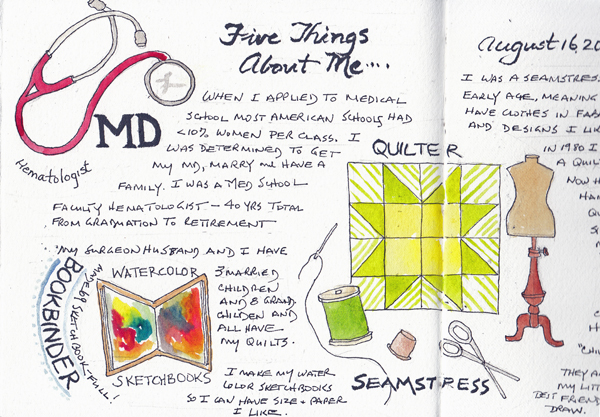 Five Things
About Me....
MD
Hematologist
WHEN I APPLIED TO MEDICAL
SCHOOL MOST AMERICAN SCHOOLS HAD
<10% WOMEN PER CLASS. I
WAS DETERMINED TO GET
MY MD, MARRY AND HAVE A
FAMILY. I WAS A MED SCHOOL
FACULTY HEMATOLOGIST - 40 YRS TOTAL
FROM GRADUATION TO RETIREMENT
MY SURGEON HUSBAND AND I HAVE
3 MARRIED
CHILDREN
AND 8 GRAND
CHILDEN AND
ALL HAVE
MY QUILTS.
BOOKBINDER
MADE 69 SKETCHBOOK-FULL!
WATERCOLOR
SKETCHBOOKS
I MAKE MY WATER
COLOR SKETCHBOOKS
SO I CAN HAVE SIZE + PAPER
I LIKE.
QUILTER
SEAMSTRESS
August 16, 20
I WAS A SEAMSTRESS
EARLY AGE, MEANING
HAVE CLOTHES IN FAB
AND DESIGNS I LIK
IN 1980 I
A QUIL
NOW H
HAN
QU
THEY A
MY LIT
BEST FRIEND
DRAW.